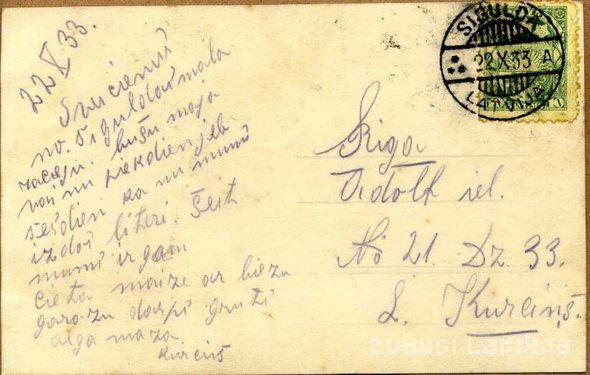 22 X 33.
Sveciens
no Siguldas mala
zaceju. busu maja
vai nu piekdien jeb
sesdien ka nu mums
izdos literi. Šeit
mums ir gan
cieta maize ar bieza
garoza darps gruti
alga maza
Kurciņš
SIGULDA
22.X.33 A
LATVIJA
Riga
Adolf iel.
No 21. Dz 33.
L. Kurciņš.
zudusi Latvija